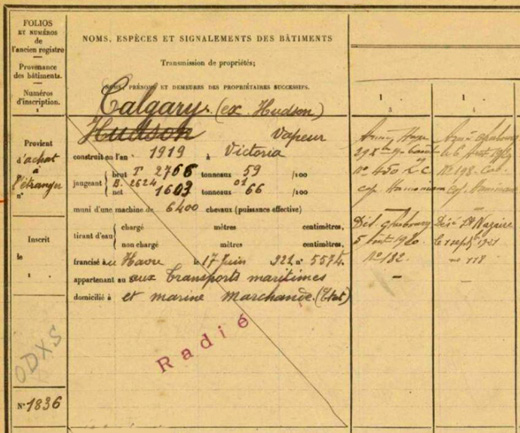 FOLIOS
ET NUMÉROS
de
l'ancien registre
Provenance
des bâtiments.
Numéros
d'inscription.
1
Provient
d'achat
à
l'étranger
Inscrit
le
ODXS
N° 1836
NOMS, ESPÈCES ET SIGNALEMENTS DES BÂTIMENTS
Transmission de propriétés;
NOMS, PRÉNOMS ET DEMEURES DES PROPRIÉTAIRES SUCCESSIFS.
2
Calgary. (ex Hudson)
Hudson Vapeur
construit en l'an 1919 à Victoria
jaugeant brut T 2766 tonneaux 59 /100
B. 2624 01
net 1603 tonneaux 66 /100
muni d'une machine de 6400 chevaux (puissance effective)
tirant d'eau chargé mètres centimètres.
non chargé mètres centimètres.
francisé au Havre le 17 Juin 1921 n° 5594.
appartenant aux Transports maritimes
domicilié à et marine Marchande. (Etat)
Radié
1
2
1
2
Havre
N° 450 L C
N° 198.
Cap.
Dés. Cherbourg
5 août 1920
N° 182.
Dés. St Nazaire
le 1921
n° 118